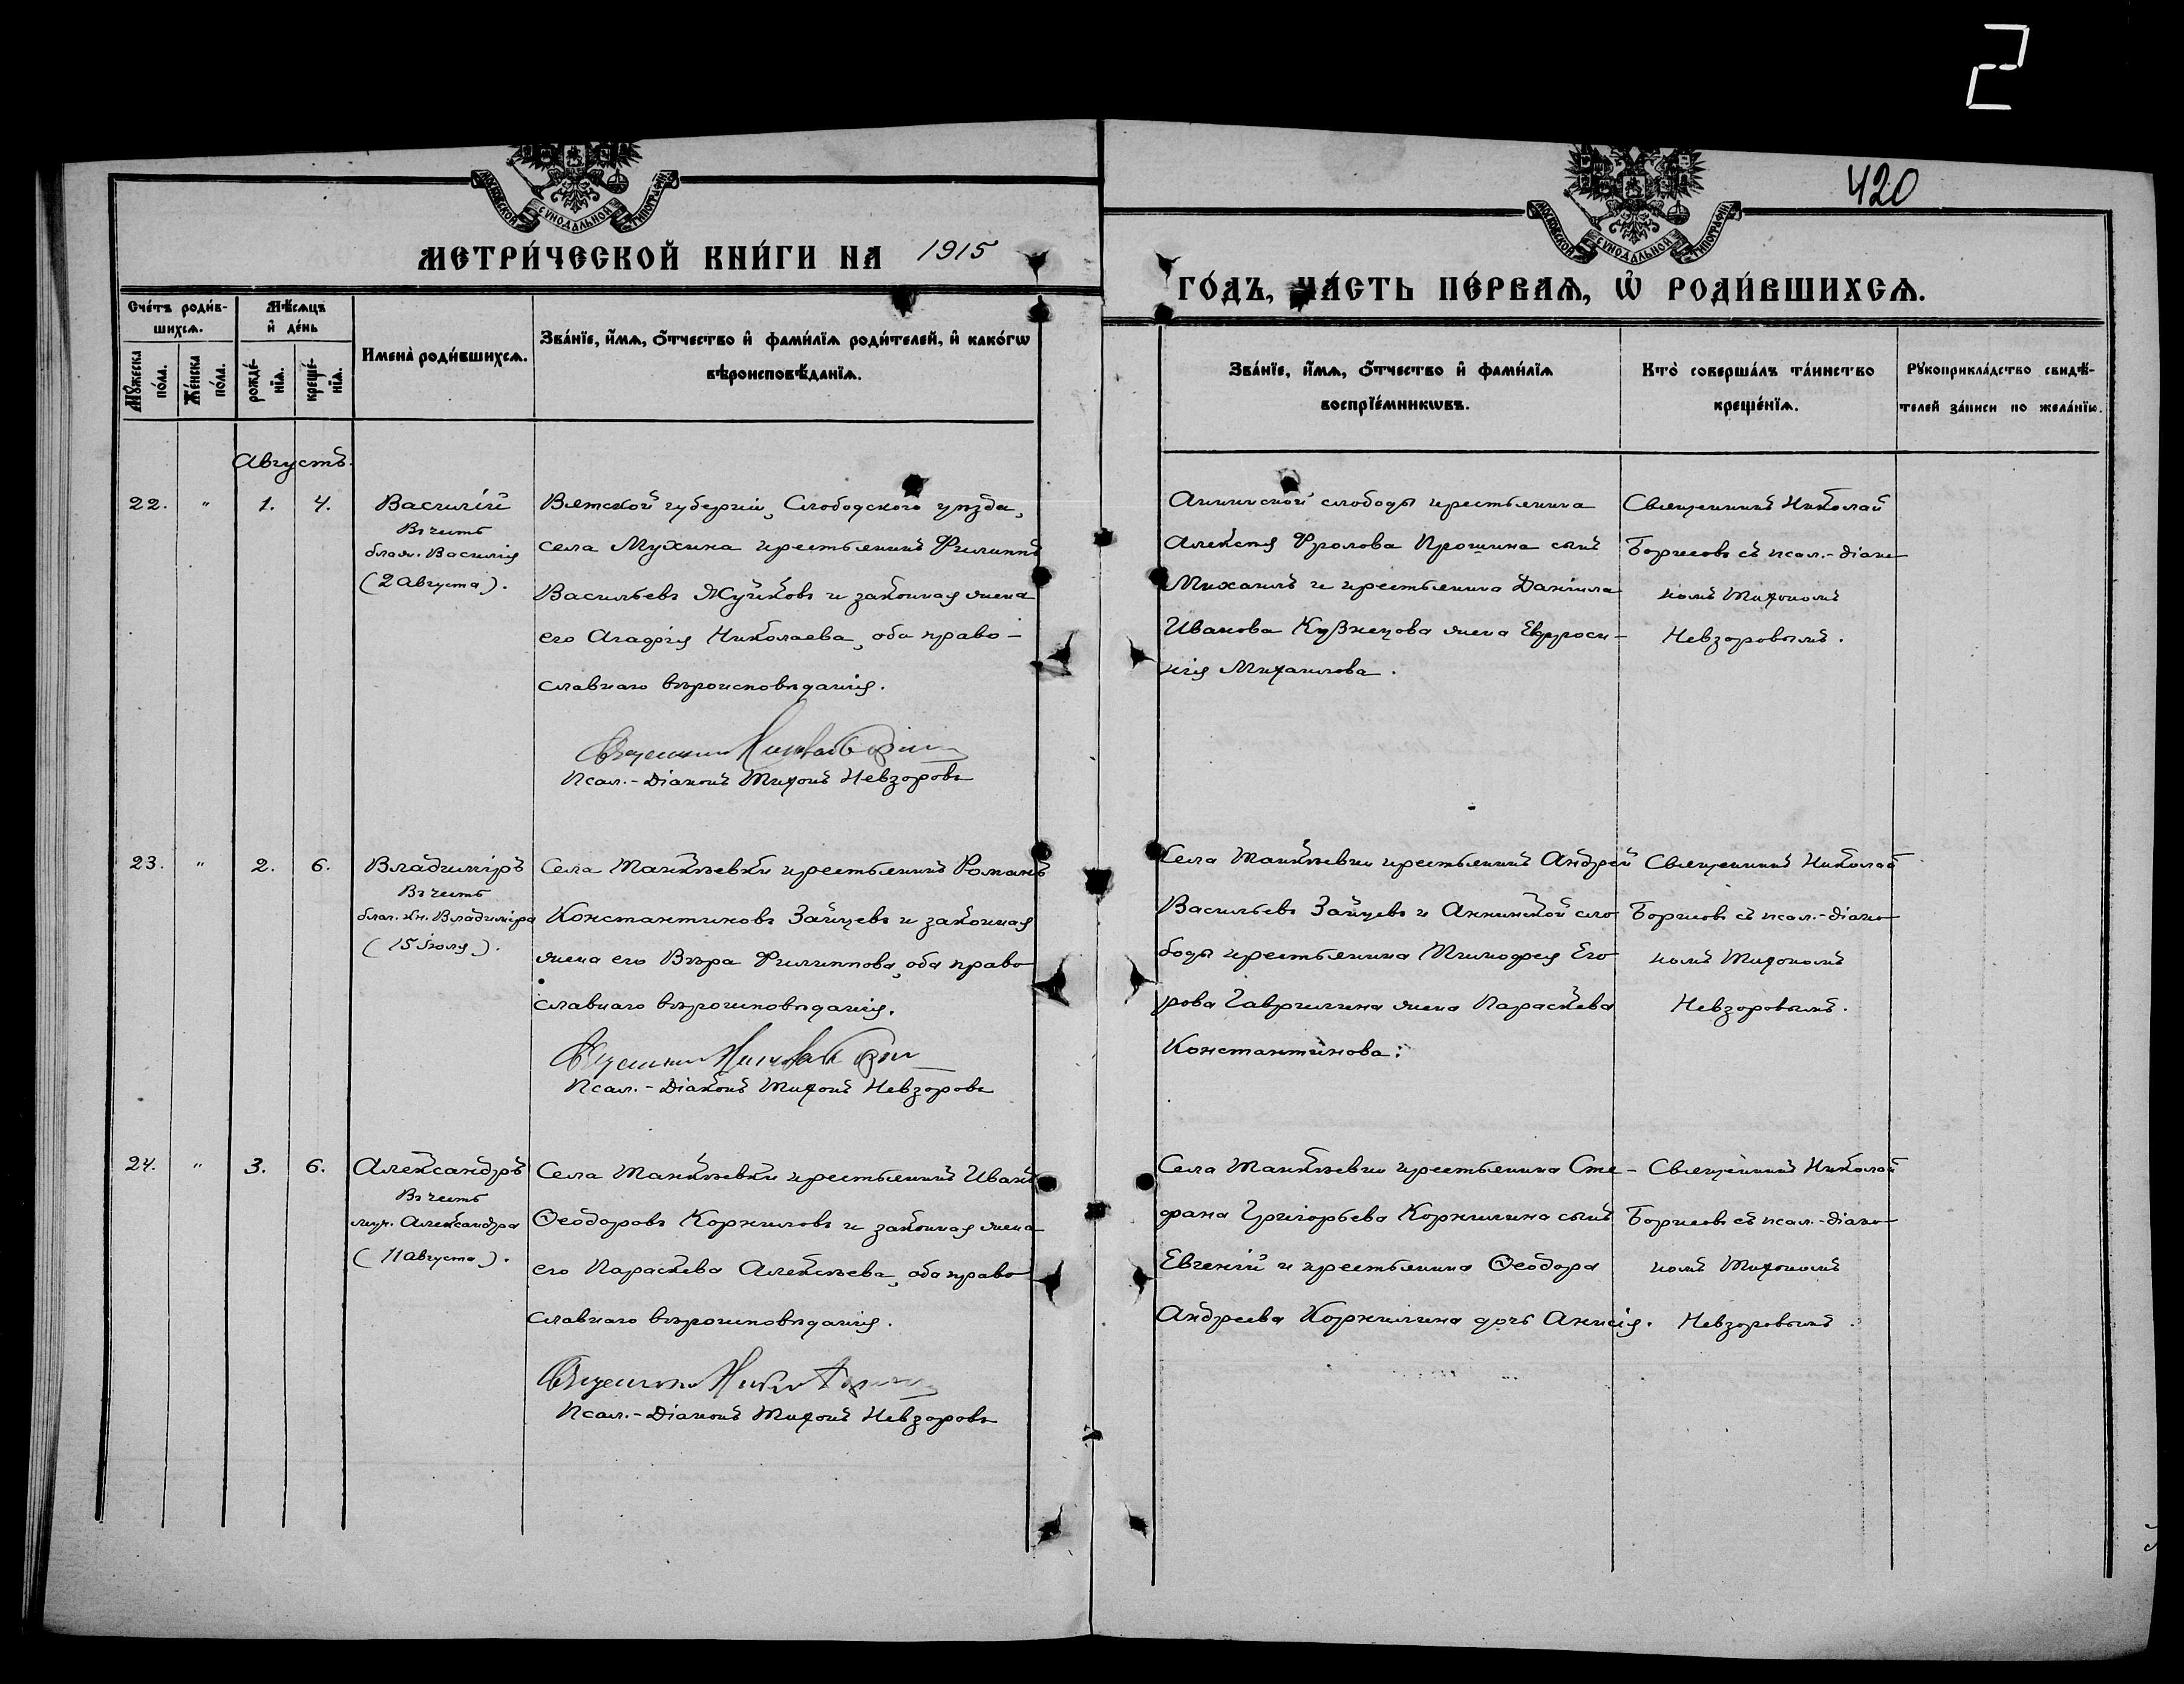 2
420
МОСКОВСКОЙ СѴНОДАЛЬНОЙ ТИПОГРАФІИ
МЕТРИ́ЧЕСКОЙ КНИ́ГИ НА 1915
МОСКОВСКОЙ СѴНОДАЛЬНОЙ ТИПОГРАФІИ
ГО́ДЪ, ЧА́СТЬ ПЕ́РВАѦ, Ѡ҆ РОДИ́ВШИХСѦ.
Сче́тъ роди́в-
шихсѧ.
Мꙋ́жеска по́ла.
Же́нска по́ла.
Мѣ́сѧцъ
и҆ де́нь
рожде́-
нїѧ.
креще́-
нїѧ.
Имена̀ роди́вшихсѧ.
Зва́нїе, и҆́мѧ, ѻ҆́тчество и҆ фами́лїѧ роди́телей, и҆ како́гѡ
вѣроисповѣ́данїѧ.
Зва́нїе, и҆́мѧ, ѻ҆́тчество и҆ фами́лїѧ
воспрїе́мникѡвъ.
Кто̀ соверша́лъ та́инство
креще́нїѧ.
Рꙋкоприкла́дство свидѣ́-
телей за́писи по жела́нїю.
Августъ.
22.
"
1.
4.
Василій
Въ честь
блаж. Василія
(2 Августа).
Вятской губерніи, Слободского уѣзда,
села Мухина крестьянинъ Филиппъ
Васильевъ Жуйковъ и законная жена
его Агафія Николаева, оба право-
славнаго вѣроисповѣданія.
Священникъ Николай
Псал.-Діаконъ Тихонъ Невзоровъ
Аннинской слободы крестьянина
Алексѣя Фролова Прошина сынъ
Михаилъ и крестьянина Даніила
Иванова Кузнецова жена Евфроси-
нія Михаилова.
Священникъ Николай
Борисовъ съ псал.-діако-
номъ Тихономъ
Невзоровымъ.
23.
"
2.
6.
Владиміръ
Въ честь
благ. кн. Владиміра
(15 іюля).
Села Танкѣевки крестьянинъ Романъ
Константиновъ Зайцевъ и законная
жена его Вѣра Филиппова, оба право
славнаго вѣроисповѣданія.
Священникъ Николай
Псал.-Діаконъ Тихонъ Невзоровъ
Села Танкѣевки крестьянинъ Андрей
Васильевъ Зайцевъ и Аннинской сло
боды крестьянина Тимофея Его
рова Гаврилина жена Параскева
Константинова.
Священникъ Николай
Борисовъ съ псал.-діако-
номъ Тихономъ
Невзоровымъ.
24.
"
3.
6.
Александръ
Въ честь
муч. Александра
(11 Августа).
Села Танкѣевки крестьянинъ Иванъ
Ѳеодоровъ Корниловъ и законная жена
его Параскева Алексѣева, оба право
славнаго вѣроисповѣданія.
Священникъ
Псал.-Діаконъ Тихонъ Невзоровъ
Села Танкѣевки крестьянина Сте-
фана Григорьева Корнилина сынъ
Евгеній и крестьянина Ѳеодора
Андреева Корнилина дочь Анисія.
Священникъ Николай
Борисовъ съ псал.-діако-
номъ Тихономъ
Невзоровымъ.